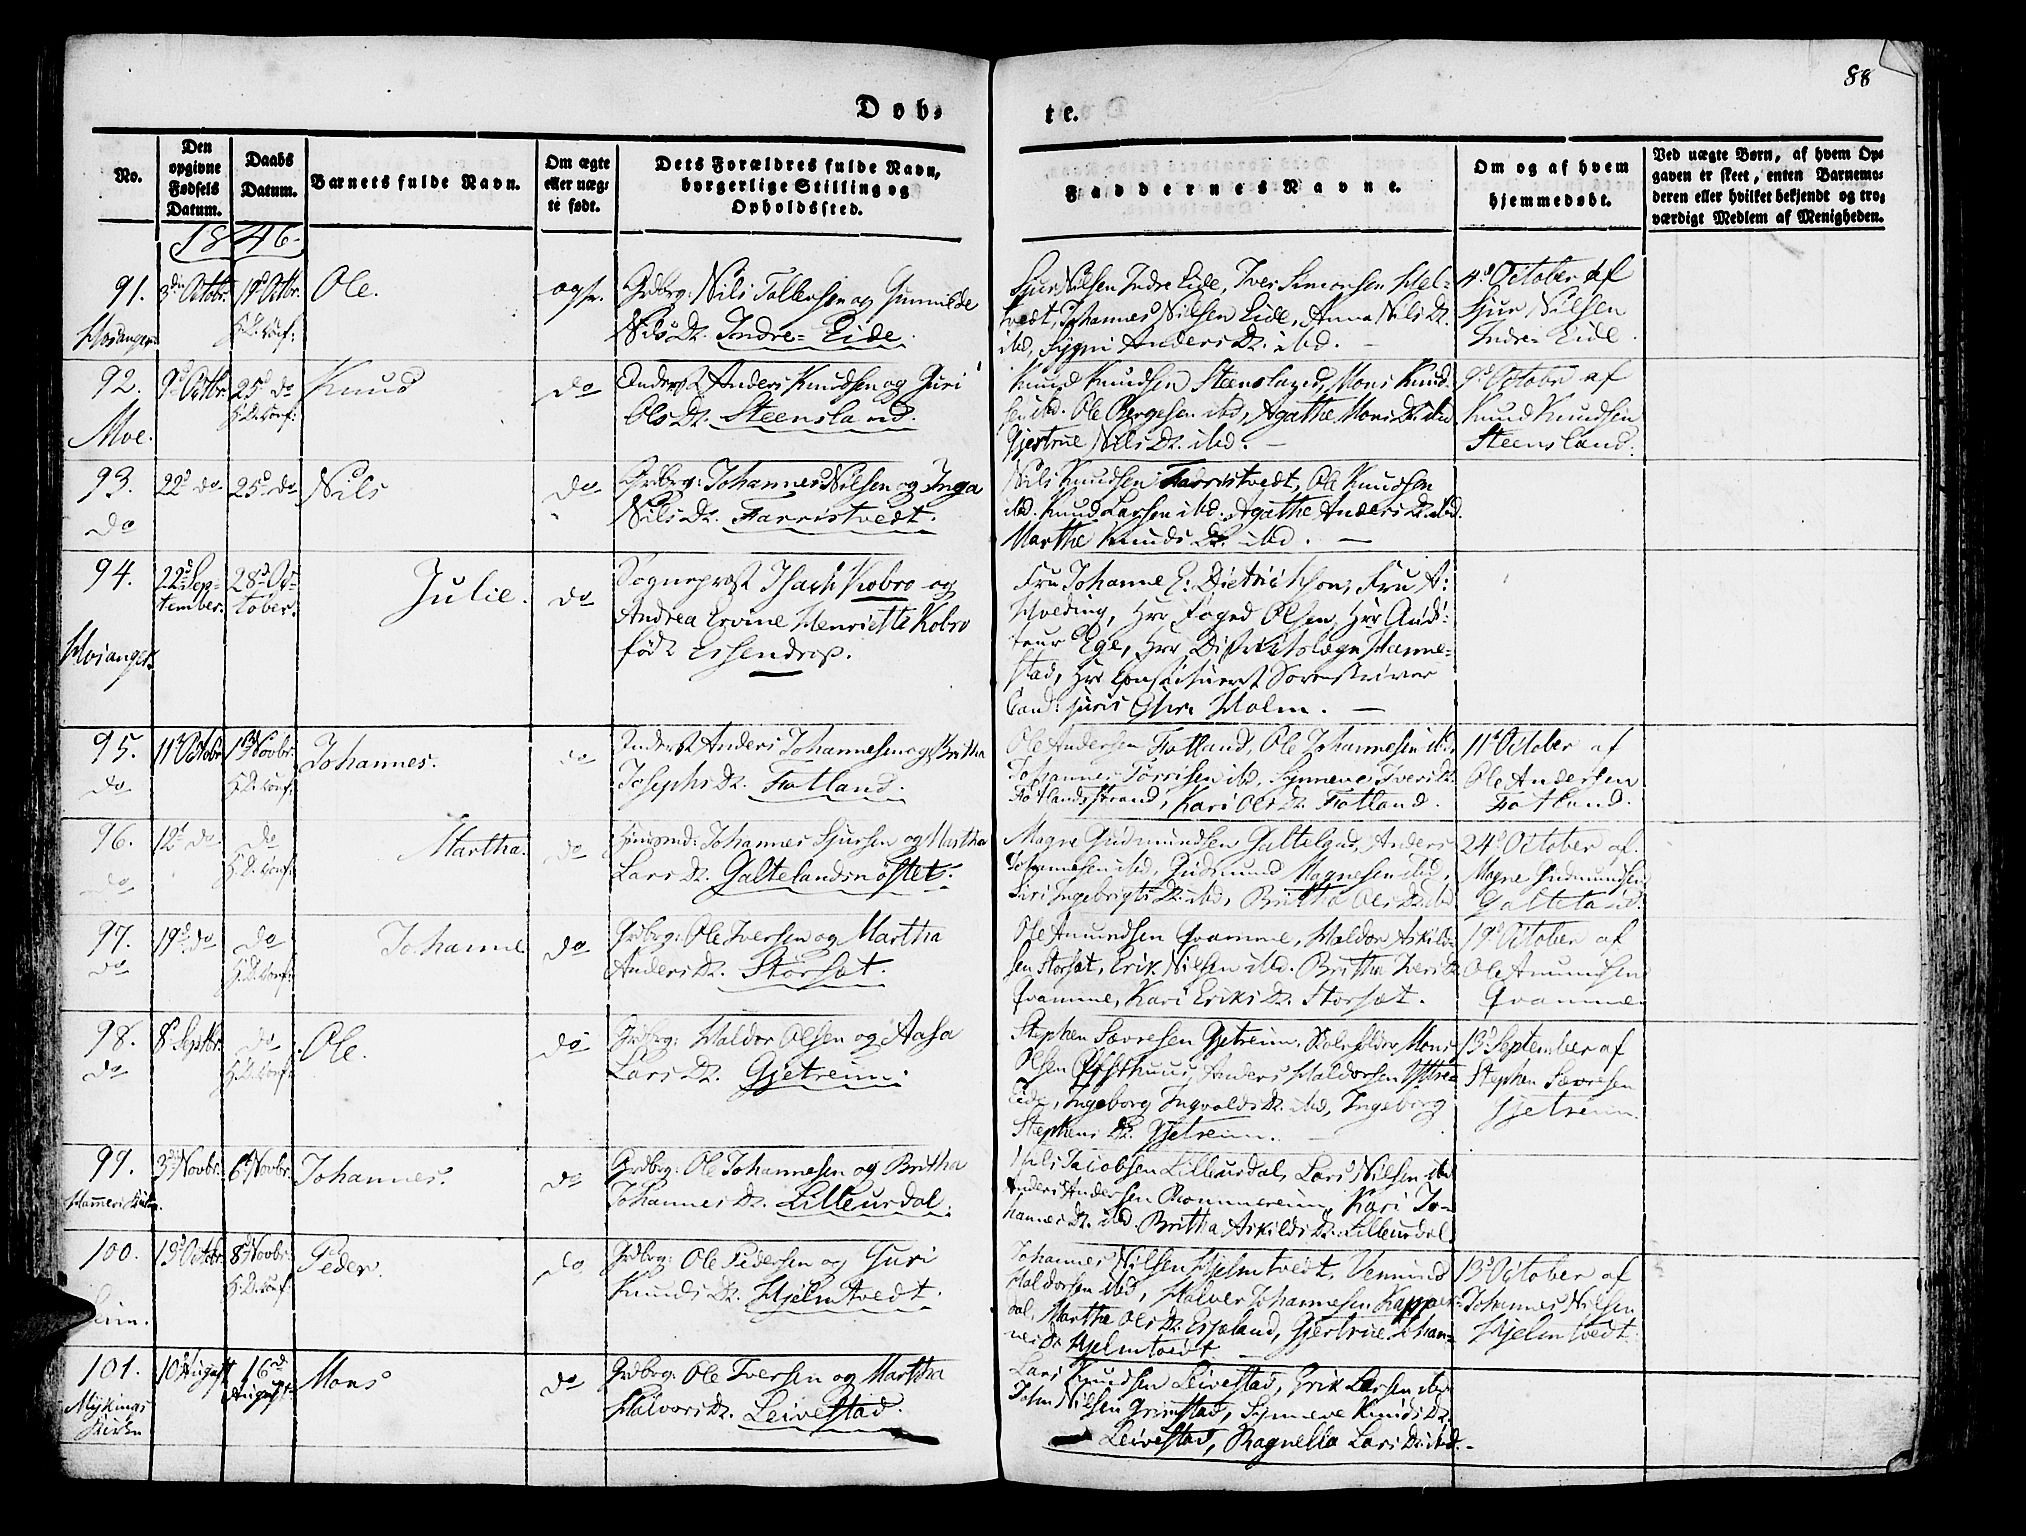 88
Døb-
te.
No.
Den opgivne Fødsels Datum.
Daabs Datum.
Barnets fulde Navn.
Om ægte eller uægte født.
Dets Forældres fulde Navn, borgerlige Stilling og Opholdssted.
Faddernes Navne.
Om og af hvem hjemmedøbt.
Ved uægte Børn, af hvem Opgaven er skeet, enten Barnemoderen eller hvilket bekjendt og troværdigt Medlem af Menigheden.
1846.
91.
Hosanger
3die Octobr.
Ole.
Nils Tollevsen og Gunnilde
Nils D. Indre-Eide.
Sjur Nilsen Indre Eide, Iver Simonsen Hel-
tvedt, Johannes Nilsen Eide, Anna Nils D.
ibd, Sygni Anders D. ibd. —
4d October af
Sjur Nilsen
Indre-Eide.
92.
Moe.
9d Octbr.
25d do
Knud
do
Anders Knudsen og Guri
Ols D. Steensland.
Knud Knudsen Steensland, Mons Knud-
sen ibd. Ole Bergesen ibd, Agathe Mons D. ibd
Gjertrue Nils D. ibd. —
9d Octobr af
Knud Knudsen
Steensland.
93.
do
22d do
25d do
Nils
do
Grdbrg: Johannes Nilsen og Inga
Nils D. Farristvedt.
Nils Knudsen Farristvedt, Ole Knudsen
ibd. Knud Larsen ibd. Agathe Anders D. ibd.
Marthe Knuds D. ibd. —
94.
Hosanger
22d Sep-
tember.
28d Oc-
tober.
Julie.
do
Sogneprest Isach Kobro og
Andrea Ervine Henriette Kobro
født Essendrop.
Fru Johanne E: Dietrichson, Fru A:
Hveding, Hrr Foged Olsen, Hrr Audi-
teur Ege, Hrr Districtslæge Hanne-
stad, Hrr Constitueret Sorenskriver
Cand: juris Chr. Holm. —
95.
do
11d Octobr
1d Novbr.
Johannes.
do
Anders Johannesen og Britha
Josephs D. Fotland.
Ole Andersen Fotland, Ole Johannesen ibd,
Johannes Torrisen ibd, Synneve Ivers D.
Fotlandsstrand, Kari Ols D. Fotland.
11d October af
Ole Andersen
Fotland.
96.
do
12d do
do
Martha.
do
Huusmd: Johannes Sjursen og Martha
Lars D. Galtelandsnøstet.
Magne Gudmundsen Galteland, Anders
Johannesen ibd, Gudmund Magnesen ibd,
Siri Ingebrigts D. ibd, Brittha Ols D. ibd.
24d October af
Magne Gudmundsen
Galteland.
97.
do
19d do
do
Johanne
do
Grdbrg: Ole Iversen og Martha
Anders D. Storsæt.
Ole Amundsen Qvamme, Haldor Askild-
sen Storsæt, Erik Nilsen ibd. Brittha Ivers D.
Qvamme, Kari Eriks D. Storsæt.
19d October af
Ole Amundsen
Qvamme.
98.
do
8d Septbr.
do
Ole.
do
Grdbrg: Haldor Olsen og Aasa
Lars D. Gjetreim.
Stephen Sævresen Gjetreim, Skoleholder Mons
Olsen Opsthuus, Anders Haldorsen Yttre
Eide, Ingeborg Ingvolds D. ibd, Ingeborg
Stephens D. Gjetreim.
13d September af
Stephen Sævresen
Gjetreim.
99.
3d Novbr.
6d Novbr.
Johannes.
do
Grdbrg: Ole Johannesen og Britha
Johannes D. Lilleurdal.
Nils Jacobsen Lilleurdal, Lars Nilsen ibd
Anders Andersen Rommereim, Kari Jo-
hannes D. ibd. Brittha Askilds D. Lilleurdal.
100.
Seim.
8d Novbr.
Peder.
do
Grdbrg: Ole Pedersen og Guri
Knuds D. Hjelmtvedt.
Johannes Nilsen Hjelmtvedt, Vemund
Haldorsen ibd, Halver Johannesen Kapper-
dal, Martha Ols D. Espeland, Gjertrue Johan-
nes D. Hjelmtvedt
13d October af
Johannes Nilsen
Hjelmtvedt.
101.
Mykings
Kirke
10d August
16d
August
Mons
do
Grdbrg: Ole Iversen og Martha
Halvors D. Leivestad.
Lars Knudsen Leivestad, Erik Larsen ibd
John Nilsen Grimstad, Synneve Knuds D.
Leivestad, Ragnilla Lars D. ibd.